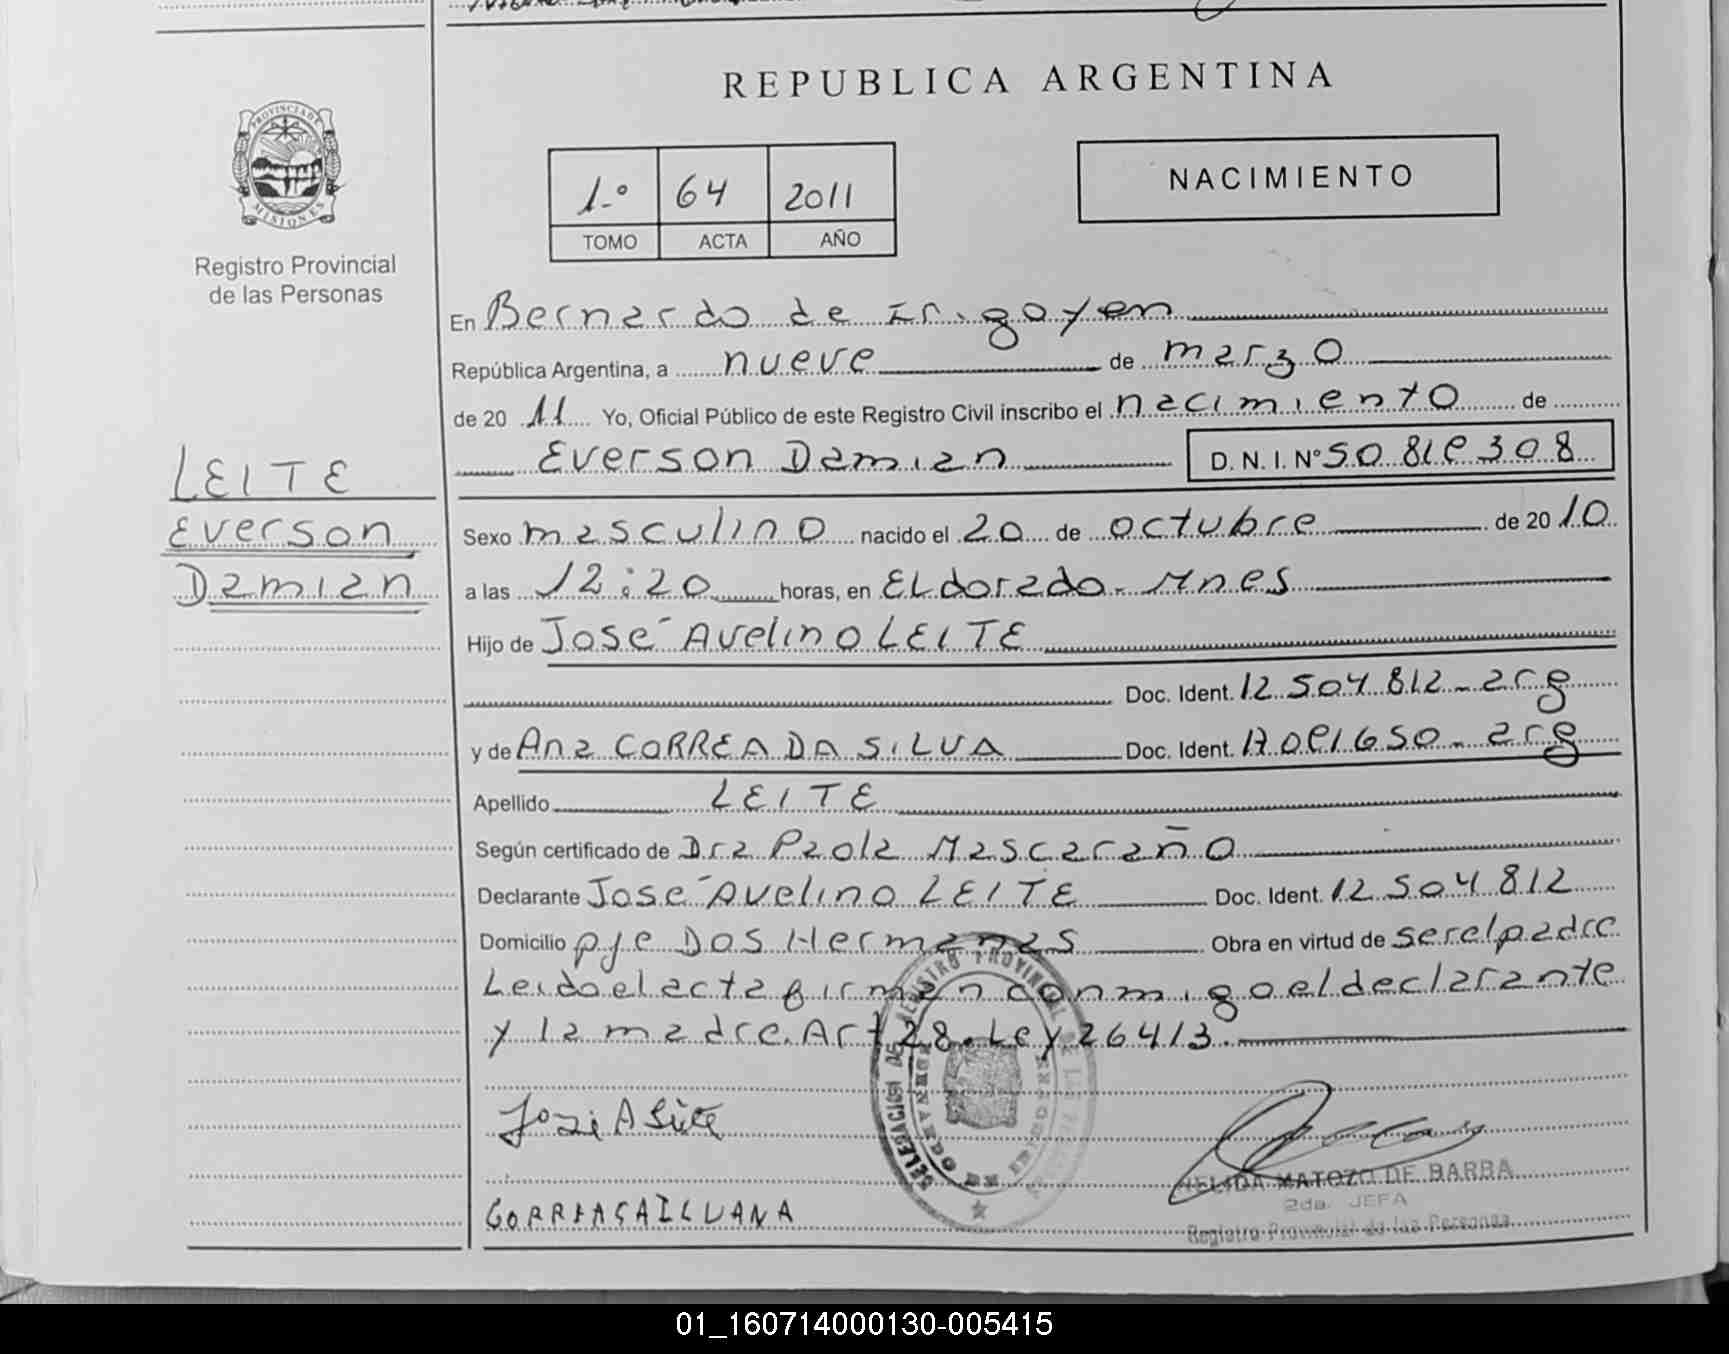 REPUBLICA ARGENTINA
PROVINCIA DE MISIONES
Registro Provincial
de las Personas
1.º 64 2011
TOMO ACTA AÑO
NACIMIENTO
LEITE
Everson
Damian
En Bernardo de Irigoyen
República Argentina, a nueve de marzo
de 20 11 Yo, Oficial Público de este Registro Civil inscribo el nacimiento de
Everson Damian D.N.I. Nº 50 819 308
Sexo masculino nacido el 20 de octubre de 2010
a las 12:20 horas, en ELdorado. Mnes
Hijo de José Avelino LEITE
Doc. Ident. 12 504 812 - arg
y de Ana CORREA DA SILVA Doc. Ident. 17 091 650 - arg
Apellido LEITE
Según certificado de Dra Paola Mascaraño
Declarante José Avelino LEITE Doc. Ident. 12 504 812
Domicilio pje Dos Hermanas Obra en virtud de ser el padre
Leido el acta firman conmigo el declarante
y la madre. Art 28. Ley 26413.
José A Leite
NELIDA MATOZO DE BARBA
2da. JEFA
Registro Provincial de las Personas
01_160714000130-005415